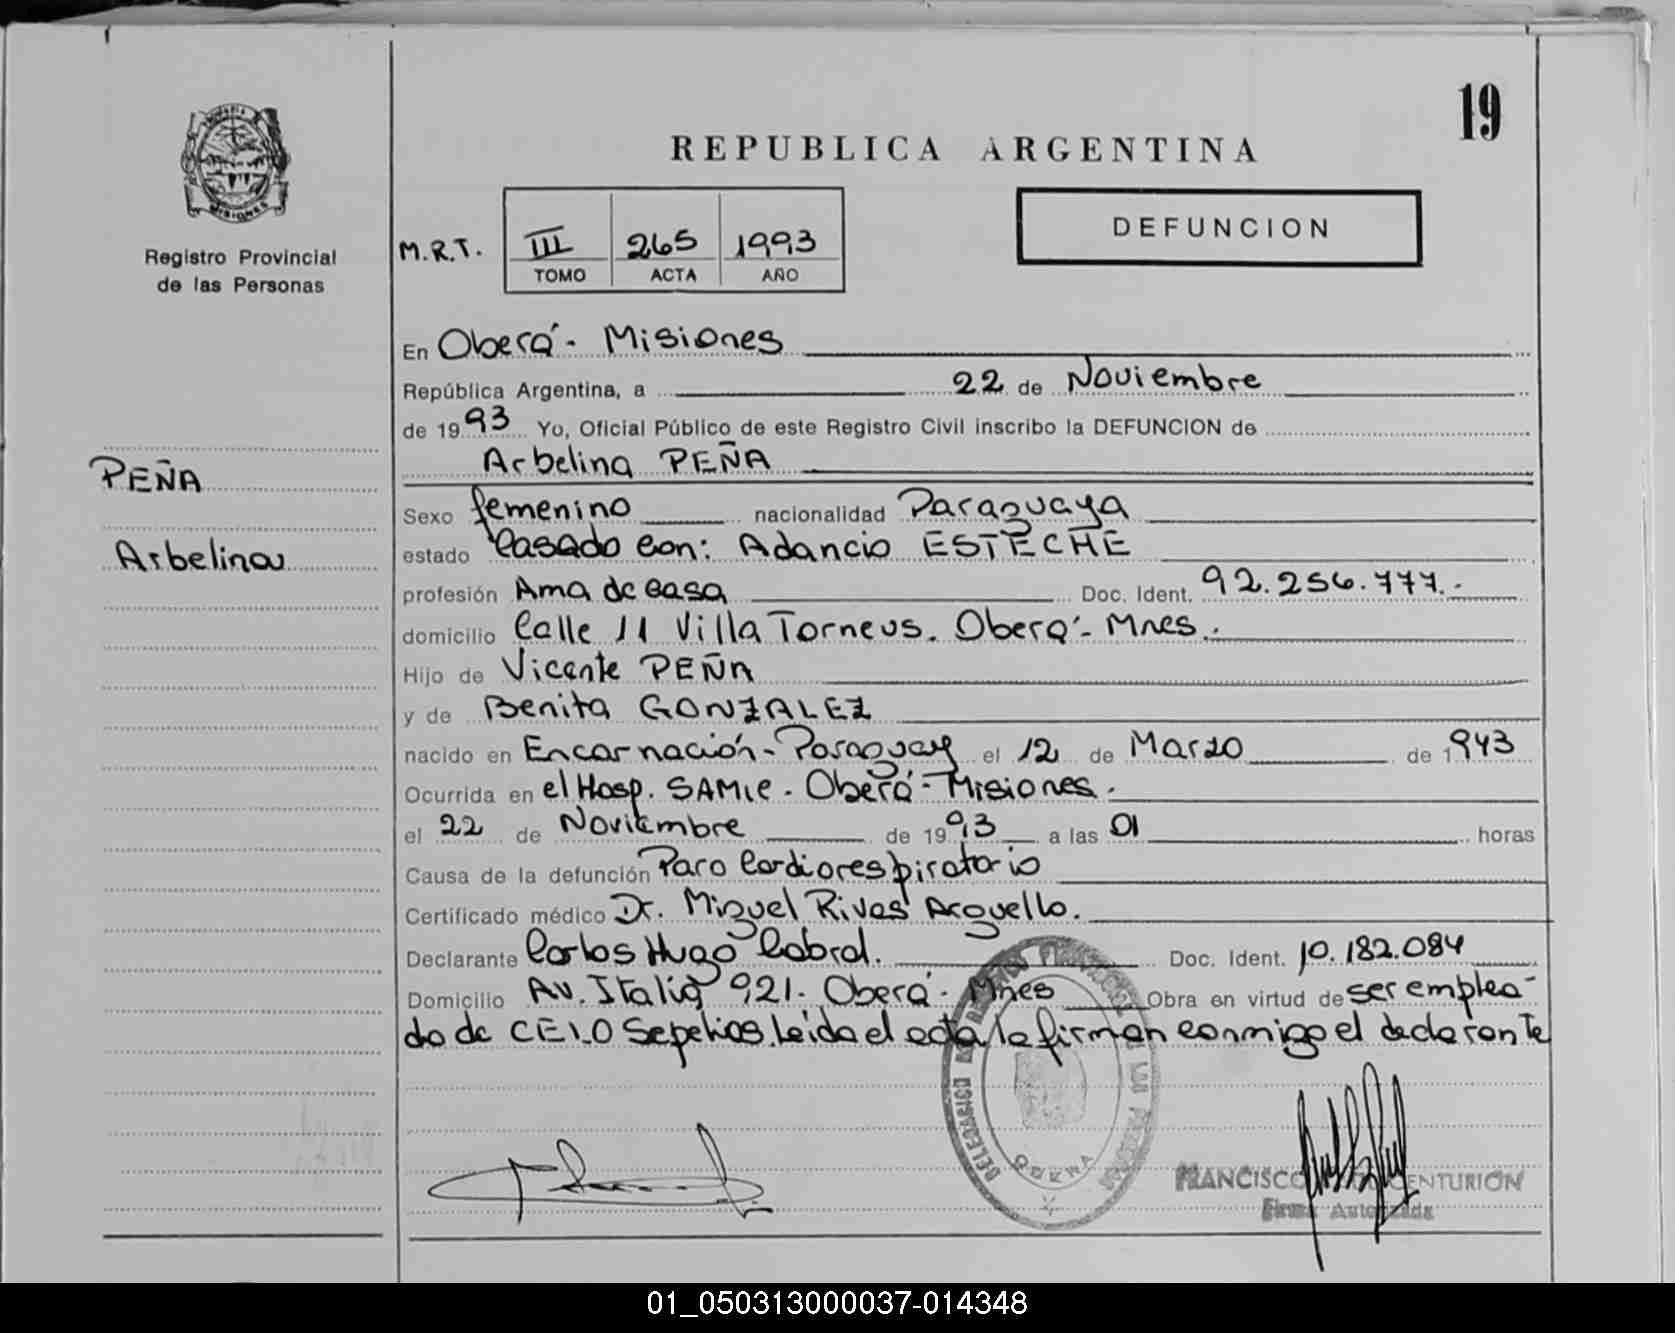 19
REPUBLICA ARGENTINA
Registro Provincial
de las Personas
M.R.T. III 265 1993
TOMO ACTA AÑO
DEFUNCION
PEÑA
Arbelina
En Oberá - Misiones
República Argentina, a 22 de Noviembre
de 1993 Yo, Oficial Público de este Registro Civil inscribo la DEFUNCION de
Arbelina PEÑA
Sexo femenino nacionalidad Paraguaya
estado Casado con: Adancio ESTECHE
profesión Ama de Casa Doc. Ident. 92.256.777.-
domicilio Calle 11 Villa Torneus. Oberá - Mnes.
Hijo de Vicente PEÑA
y de Benita GONZALEZ
nacido en Encarnación - Paraguay el 12 de Marzo de 1943
Ocurrida en el Hosp. SAMIC - Oberá - Misiones.
el 22 de Noviembre de 1993 a las 01 horas
Causa de la defunción Paro Cardiorespiratorio
Certificado médico Dr. Miguel Rivas Arguello.
Declarante Carlos Hugo Cabral. Doc. Ident. 10.182.084
Domicilio Av. Italia 921 - Oberá - Mnes Obra en virtud de ser emplea-
do de CELO Sepelios. Leida el acta la firman conmigo el declarante
DELEGACION OBERA
FRANCISCO CENTURION
Firma Autorizada
01_050313000037-014348